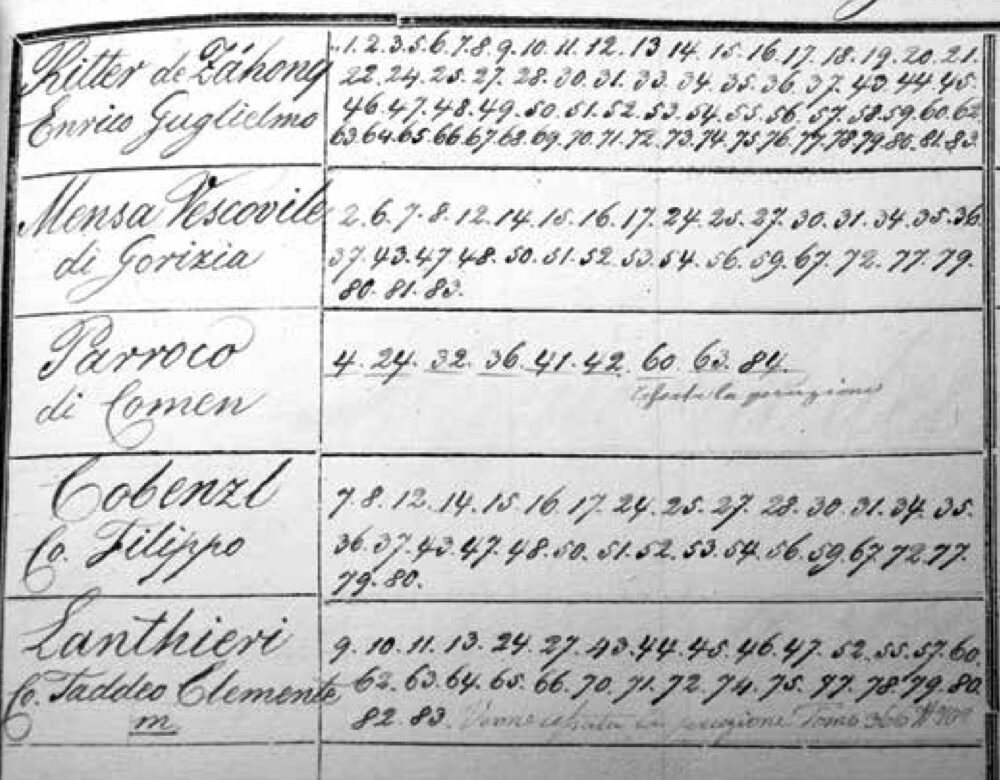 Ritter de Záhony
Enrico Guglielmo
1. 2. 3. 5. 6. 7. 8. 9. 10. 11. 12. 13 14. 15. 16. 17. 18. 19. 20. 21.
22. 24. 25. 27. 28. 30. 31. 33. 34. 35. 36. 37. 43. 44. 45.
46. 47. 48. 49. 50. 51. 52. 53. 54. 55. 56. 57. 58. 59. 60. 62
63. 64. 65. 66. 67. 68. 69. 70. 71. 72. 73. 74. 75. 76. 77. 78. 79. 80. 81. 83.
Mensa Vescovile
di Gorizia
2. 6. 7. 8. 12. 14. 15. 16. 17. 24. 25. 27. 30. 31. 34. 35. 36.
37. 43. 47 48. 50. 51. 52. 53. 54. 56. 59. 67. 72. 77. 79.
80. 81. 83.
Parroco
di Comen
4. 24. 32. 36. 41. 42. 60. 63. 84.
la
Cobenzl
Co. Filippo
7. 8. 12. 14. 15. 16. 17. 24. 25. 27. 28. 30. 31. 34. 35.
36. 37. 43. 47. 48. 50. 51. 52. 53. 54. 56. 59. 67. 72. 77.
79. 80.
Lanthieri
Co. Taddeo Clemente
m
9. 10. 11. 13. 24. 27. 43. 44. 45. 46. 47. 52. 55. 57. 60.
62. 63. 64. 65. 66. 70. 71. 72. 74. 75. 77. 78. 79. 80.
82. 83. Tomo